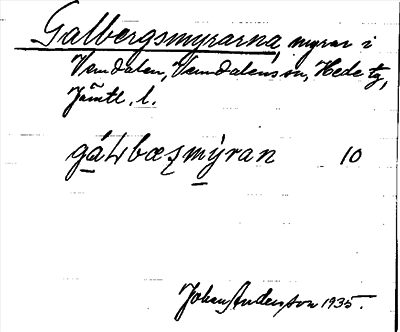 Galbergsmyrarna, myrar i
Vemdalen, Vemdalens sn, Hede tg,
Jämtl. l.
gáƚƚbœʒmýran 10
Johan Andersson 1935.